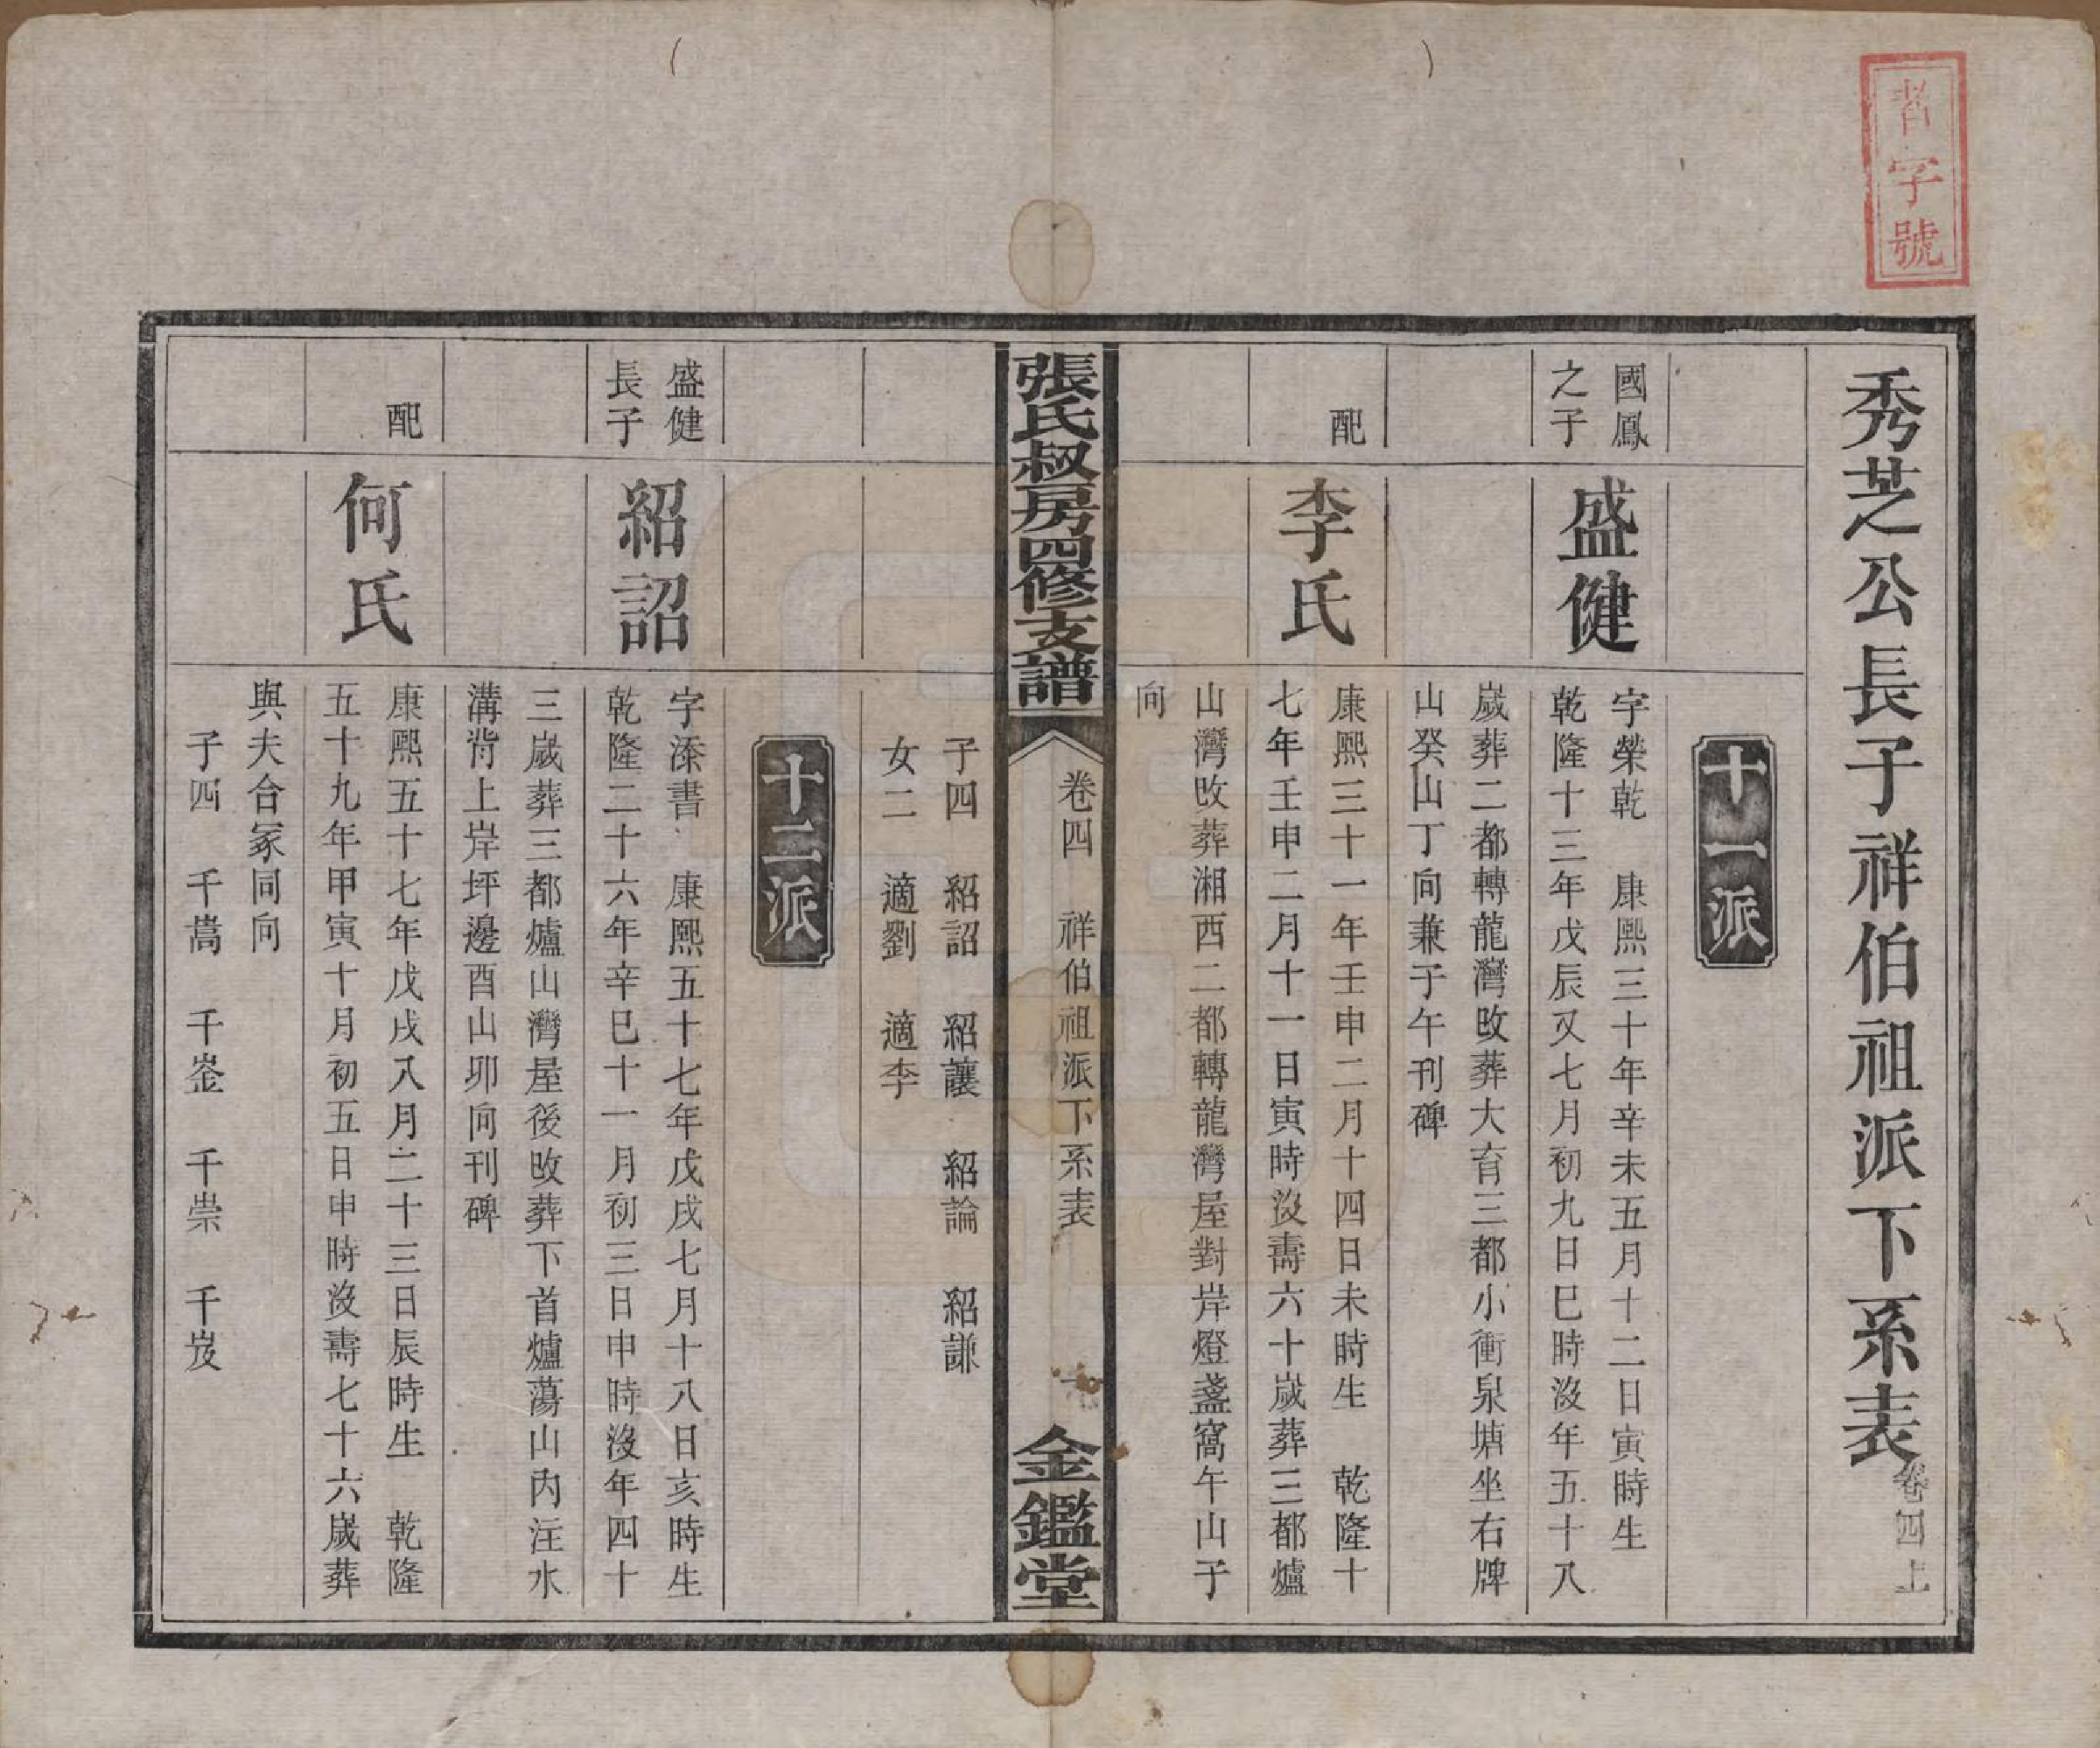 耆字號
秀芝公長子祥伯祖派下系表
卷四上
十一派
國鳳
之子
盛健
字榮乾　康熙三十年辛未五月十二日寅時生
乾隆十三年戊辰又七月初九日巳時沒年五十八
歲葬二都轉龍灣改葬大育三都小衝泉塘坐右牌
山癸山丁向兼子午刊碑
配
李氏
康熙三十一年壬申二月十四日未時生　乾隆十
七年壬申二月十一日寅時沒壽六十歲葬三都爐
山灣改葬湘西二都轉龍灣屋對岸燈盞窩午山子
向
張氏叔房四修支譜
卷四　祥伯祖派下系表
一
金鑑堂
子四　紹詔　紹讓　紹論　紹謙
女二　適劉　適李
十二派
盛健
長子
紹詔
字漆書　康熙五十七年戊戌七月十八日亥時生
乾隆二十六年辛巳十一月初三日申時沒年四十
三歲葬三都爐山灣屋後改葬下首爐蕩山內注水
溝背上岸坪邊酉山卯向刊碑
配
何氏
康熙五十七年戊戌八月二十三日辰時生　乾隆
五十九年甲寅十月初五日申時沒壽七十六歲葬
與夫合冢同向
子四　千嵩　千崟　千崇　千岌